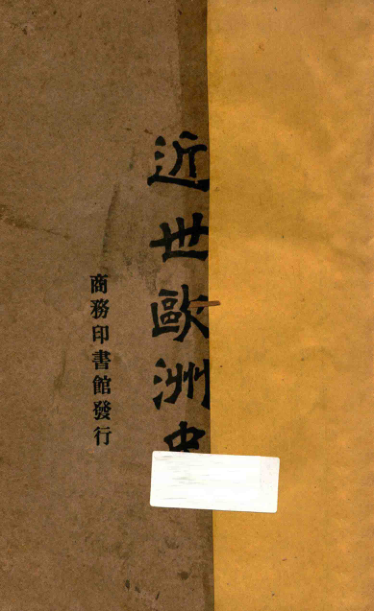 近世歐洲史
商務印書館發行